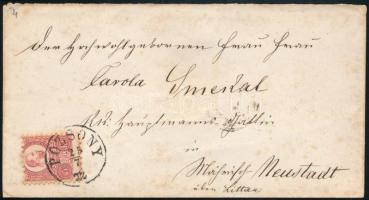 Der Hochwohlgebornen Frau Frau
Carola Smekal
k.k. Hauptmanns-Gattin
in
Mährisch Neustadt
über Littau
POZSONY